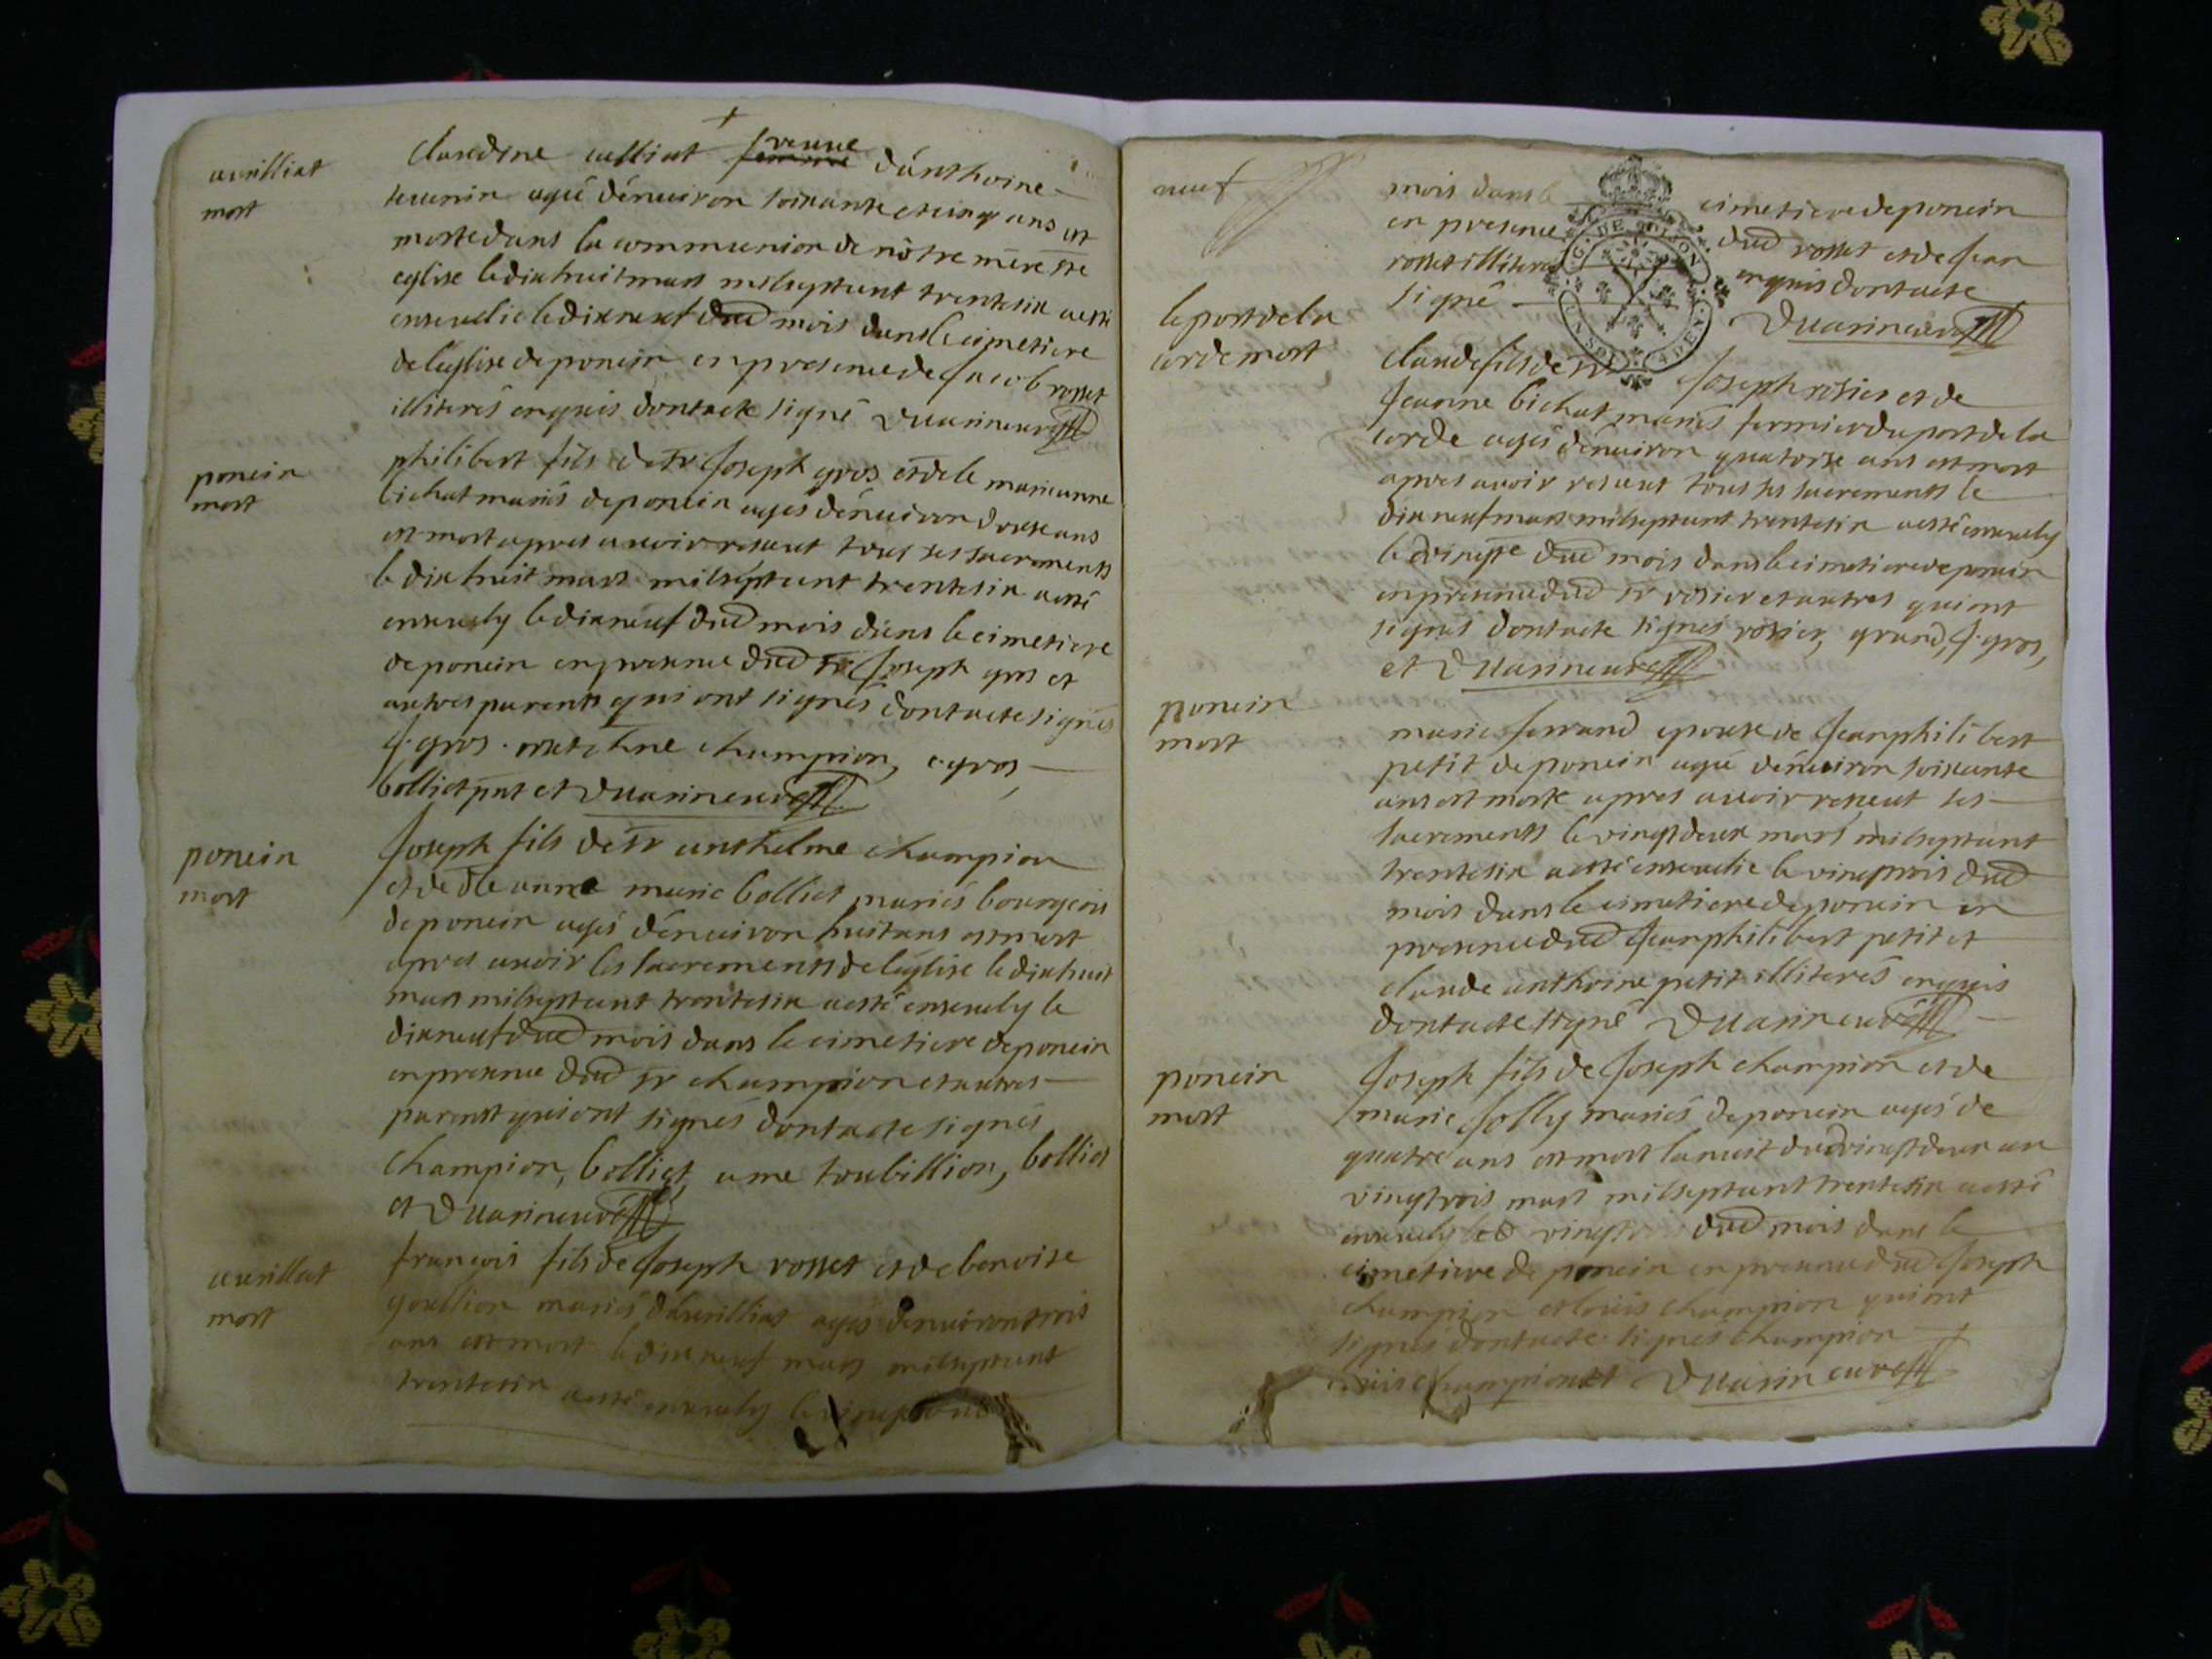 avrilliat
mort
Claudine culliat veuve d'anthoine
agé d'énuiron soixante et cinq ans est
morte dans la communion de nôtre mère ste
eglise le dixhuit mars milseptcent trentesix a esté
enseuelie le dixneuf dud mois dans le cimetiere
de l'eglise de poncin en presence de Jacob rosset
illiterés enquis dont acte signé
poncin
mort
philibert fils de sr Joseph gros et de le marieanne
bichat mariés de poncin agés d'énuiron douse ans
est mort apres auoir reseut tous ses sacrements
le dixhuit mars milseptcent trentesix a esté
enseuely le dixneuf dud mois dans le cimetiere
de poncin en presence dud sr Joseph gros et
autres parents qui ont signés dont acte signés
J. gros champion, c. gros,
bolliet et
poncin
mort
Joseph fils de sr anthelme champion
et de dle anne marie bolliet mariés bourgeois
de poncin agés d'énuiron huit ans est mort
apres auoir les sacrements de l'eglise le dixhuit
mars milseptcent trentesix a esté enseuely le
dixneuf dud mois dans le cimetiere de poncin
en presence dud sr champion et autres
parents qui ont signés dont acte signés
Champion, bolliet, ame toubillion, bolliet
et
avrillat
mort
françois fils de Joseph rosset et de benoite
goullion mariés d'avrilliat agés d'énuiron trois
ans est mort le dixneuf mars milseptcent
trentesix a esté enseuely le
neuf
mois dans le cimetiere de poncin
en presence dud rosset et de Jean
rosset illiterés enquis dont acte
signé
le port de la
corde mort
Claude fils de sr Joseph rosier et de
Jeanne bichat mariés fermier du port de la
corde agés d'énuiron quatorse ans est mort
apres auoir reseut tous ses sacrements le
dixneuf mars milseptcent trentesix a esté enseuely
le vingte dud mois dans le cimetiere de poncin
en presence dud sr rosier et autres qui ont
signés dont acte signés rosier, grand, J. gros,
et
poncin
mort
marie ferrand epouse de Jeanphilibert
petit de poncin agé d'énuiron soixante
ans est morte apres auoir resseut ses
sacrements le vingtdeux mars milseptcent
trentesix a esté enseuelie le vingtrois dud
mois dans le cimetiere de poncin en
presence dud Jeanphilibert petit et
claude anthoine petit illiterés enquis
dont acte signé
poncin
mort
Joseph fils de Joseph champion et de
marie Jolly mariés de poncin agés de
quatre ans est mort la nuit du vingtdeux au
vingtrois mars milseptcent trentesix a esté
enseuely led vingtrois dud mois dans le
cimetiere de poncin en presence dud Joseph
champion et louis champion qui ont
signés dont acte signés champion
champion et